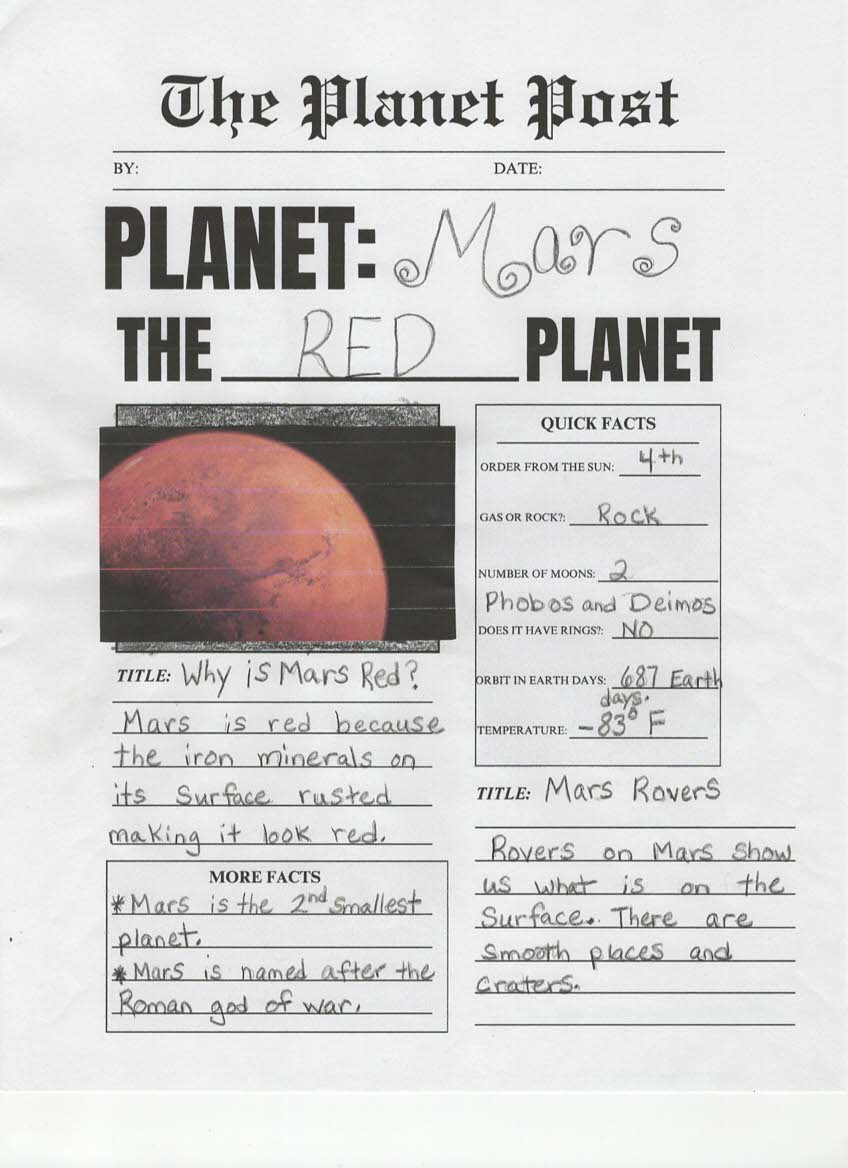 The Planet Post
BY: DATE:
PLANET: Mars
THE RED PLANET
TITLE: Why is Mars Red?
Mars is red because
the iron minerals on
its surface rusted
making it look red.
MORE FACTS
* Mars is the 2nd smallest
planet.
* Mars is named after the
Roman god of war.
QUICK FACTS
ORDER FROM THE SUN: 4th
GAS OR ROCK?: Rock
NUMBER OF MOONS: 2
Phobos and Deimos
DOES IT HAVE RINGS?: NO
ORBIT IN EARTH DAYS: 687 Earth
days.
TEMPERATURE: -83° F
TITLE: Mars Rovers
Rovers on Mars show
us what is on the
Surface. There are
smooth places and
craters.